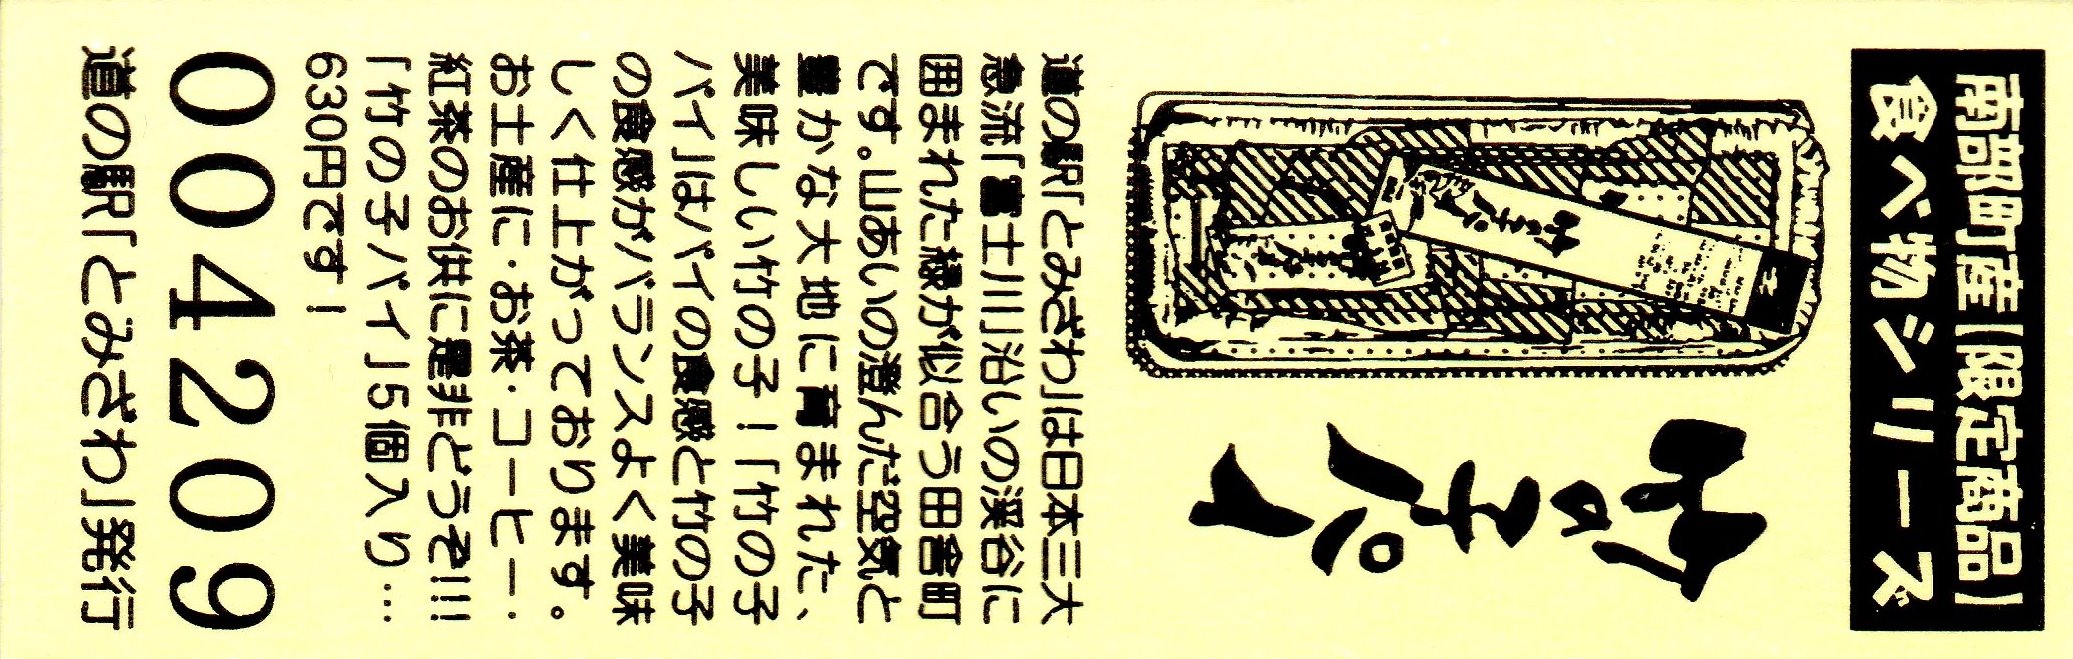 南部町産【限定商品】
食べ物シリーズ
竹の子パイ
道の駅「とみざわ」は日本三大
急流「富士川」沿いの渓谷に
囲まれた緑が似合う田舎町
です。山あいの澄んだ空気と
豊かな大地に育まれた、
美味しい竹の子！「竹の子
パイ」はパイの食感と竹の子
の食感がバランスよく美味
しく仕上がっております。
お土産に・お茶・コーヒー・
紅茶のお供に是非どうぞ!!!
「竹の子パイ」5個入り…
630円です！
004209
道の駅「とみざわ」発行